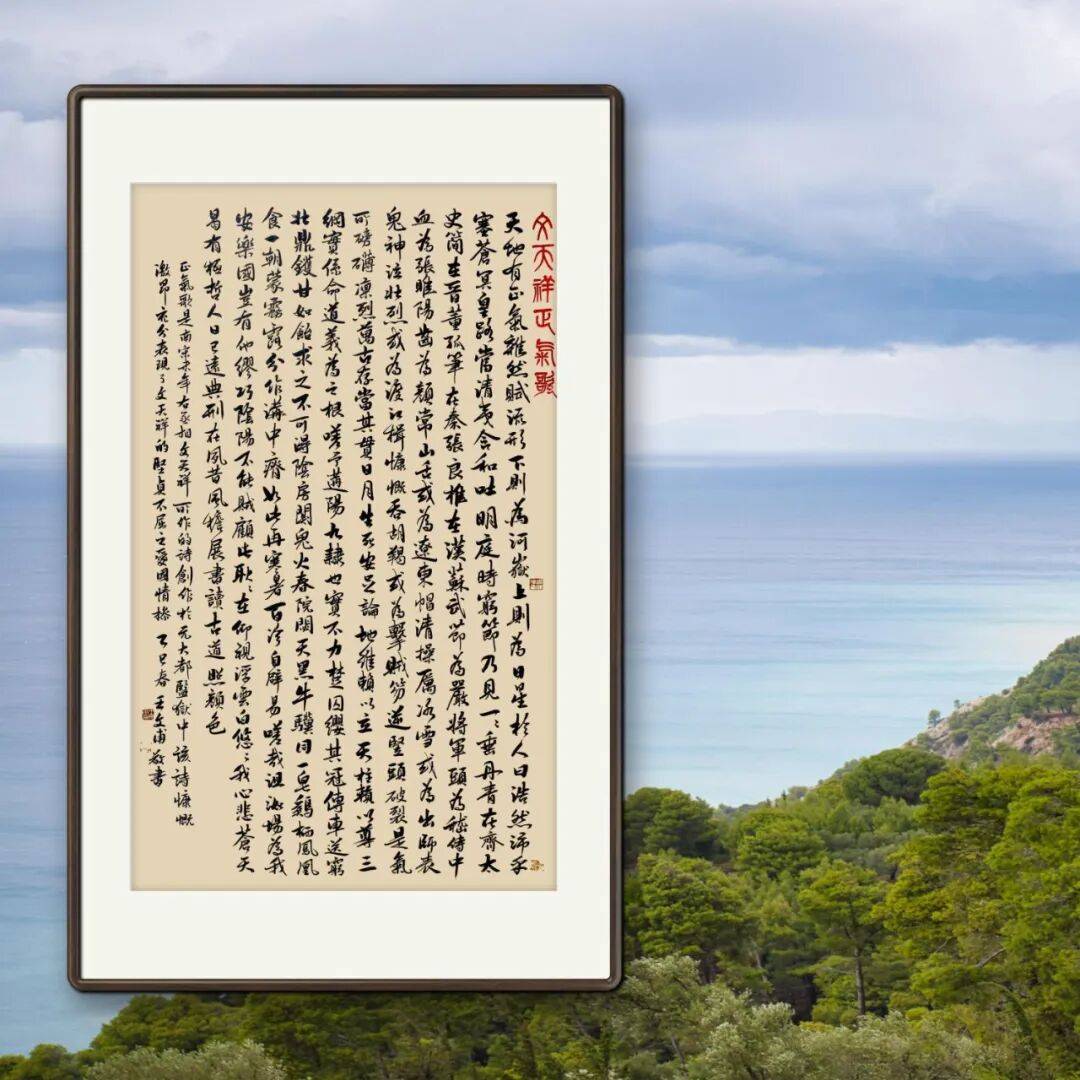 文天祥正氣歌
天地有正氣雜然賦流形下則為河嶽上則為日星於人曰浩然沛乎
塞蒼冥皇路當清夷含和吐明庭時窮節乃見一〻垂丹青在齊太
史简在晉董狐筆在秦張良椎在漢蘇武節為嚴將軍頭為嵇侍中
血為張睢陽齒為顏常山舌或為遼東帽清操厲冰雪或為出師表
鬼神泣壯烈或為渡江楫慷慨吞胡羯或為擊賊笏逆豎頭破裂是氣
所磅礴凜烈萬古存當其貫日月生死安足論地維賴以立天柱賴以尊三
綱實係命道義為之根嗟予遘陽九隸也實不力楚囚纓其冠傳車送窮
北鼎鑊甘如飴求之不可得陰房闃鬼火春院閟天黑牛驥同一皂鷄栖鳳凰
食一朝蒙霧露分作溝中瘠如此再寒暑百沴自辟易嗟哉沮洳場為我
安樂國豈有他繆巧陰陽不能賊顧此耿〻在仰視浮雲白悠〻我心悲蒼天
曷有極哲人日已遠典刑在夙昔風簷展書讀古道照顏色
正氣歌是南宋末年右丞相文天祥所作的詩創作於元大都監獄中該詩慷慨
激昂充分表現了文天祥的堅貞不屈之愛國情操 乙巳春 王文甫敬書